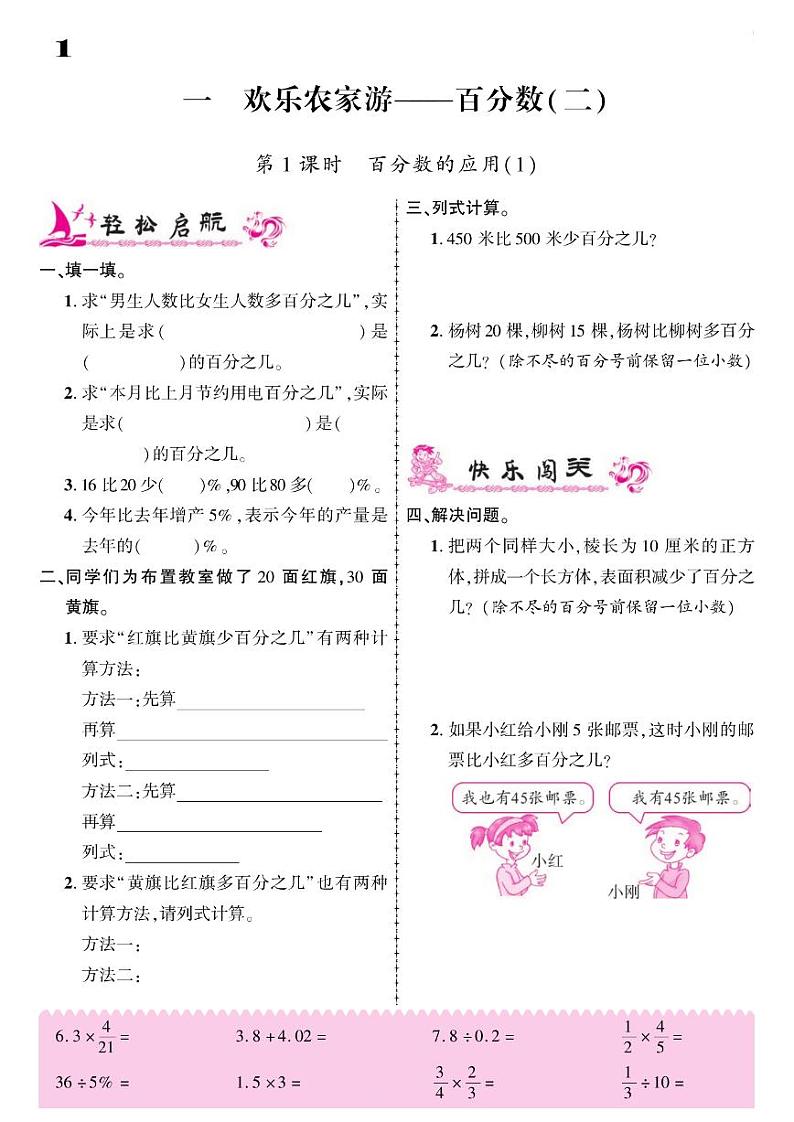 1
一 欢乐农家游——百分数(二)
第1课时 百分数的应用(1)
轻松启航
一、填一填。
1. 求“男生人数比女生人数多百分之几”,实
际上是求( )是
( )的百分之几。
2. 求“本月比上月节约用电百分之几”,实际
是求( )是(
)的百分之几。
3. 16比20少( )%,90比80多( )%。
4. 今年比去年增产5%,表示今年的产量是
去年的( )%。
二、同学们为布置教室做了20面红旗,30面
黄旗。
1. 要求“红旗比黄旗少百分之几”有两种计
算方法:
方法一:先算
再算
列式:
方法二:先算
再算
列式:
2. 要求“黄旗比红旗多百分之几”也有两种
计算方法,请列式计算。
方法一:
方法二:
三、列式计算。
1. 450米比500米少百分之几?
2. 杨树20棵,柳树15棵,杨树比柳树多百分
之几?(除不尽的百分号前保留一位小数)
快乐闯关
四、解决问题。
1. 把两个同样大小,棱长为10厘米的正方
体,拼成一个长方体,表面积减少了百分之
几?(除不尽的百分号前保留一位小数)
2. 如果小红给小刚5张邮票,这时小刚的邮
票比小红多百分之几?
我也有45张邮票。 我有45张邮票。
小红
小刚
6.3×4/21= 3.8+4.02= 7.8÷0.2= 1/2×4/5=
36÷5%= 1.5×3= 3/4×2/3= 1/3÷10=